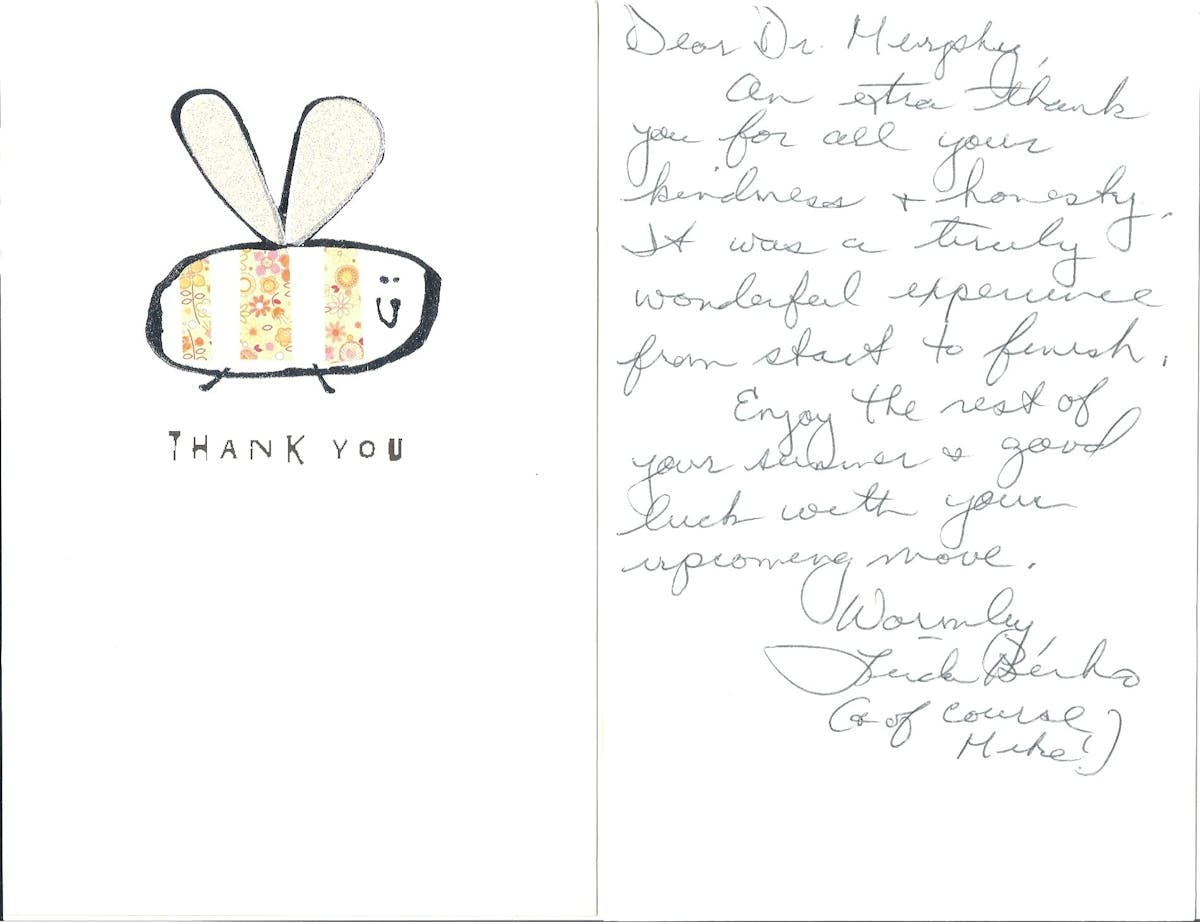 THANK YOU
Dear Dr. Murphy,
An extra thank
you for all your
kindness & honesty.
It was a truly
wonderful experience
from start to finish.
Enjoy the rest of
your summer & good
luck with your
upcoming move.
Warmly,
(& of course
Mike!)